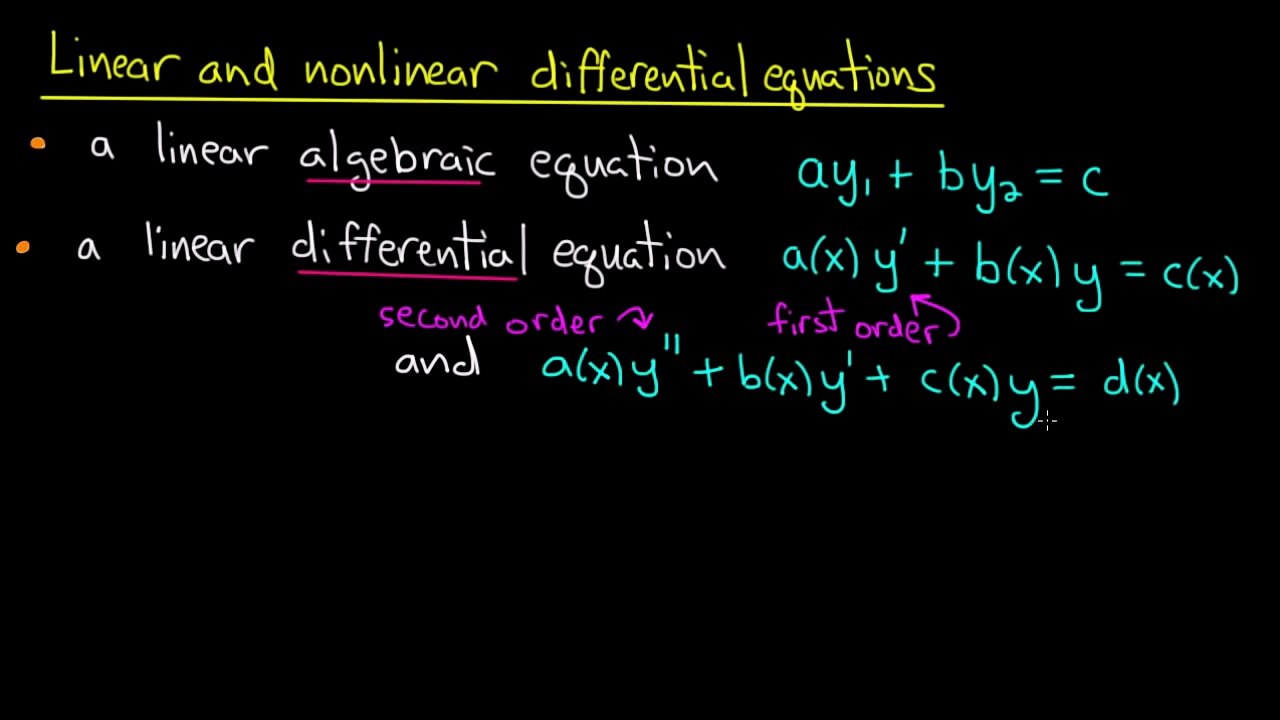 Linear and nonlinear differential equations
• a linear algebraic equation ay₁ + by₂ = c
• a linear differential equation a(x) y' + b(x) y = c(x)
second order first order
and a(x) y'' + b(x) y' + c(x) y = d(x)